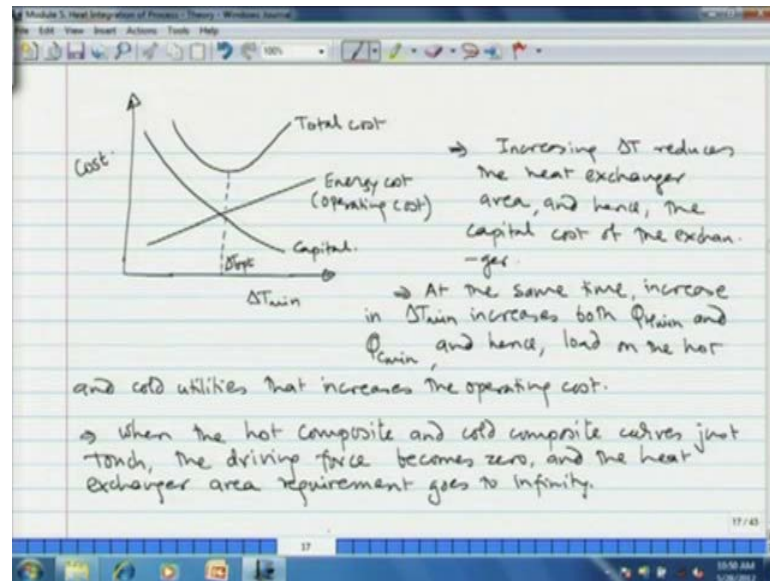 Module 5. Heat Integration of Process - Theory - Windows Journal
File Edit View Insert Actions Tools Help
100%
Cost.
Total cost
Energy cost
(operating cost)
Capital.
ΔTopt
ΔTmin
⇒ Increasing ΔT reduces
the heat exchanger
area, and hence, the
capital cost of the exchan-
-ger.
⇒ At the same time, increase
in ΔTmin increases both QHmin and
QCmin, and hence, load on the hot
and cold utilities that increases the operating cost.
⇒ When the hot composite and cold composite curves just
touch, the driving force becomes zero, and the heat
exchanger area requirement goes to infinity.
17/43
17
10:50 AM